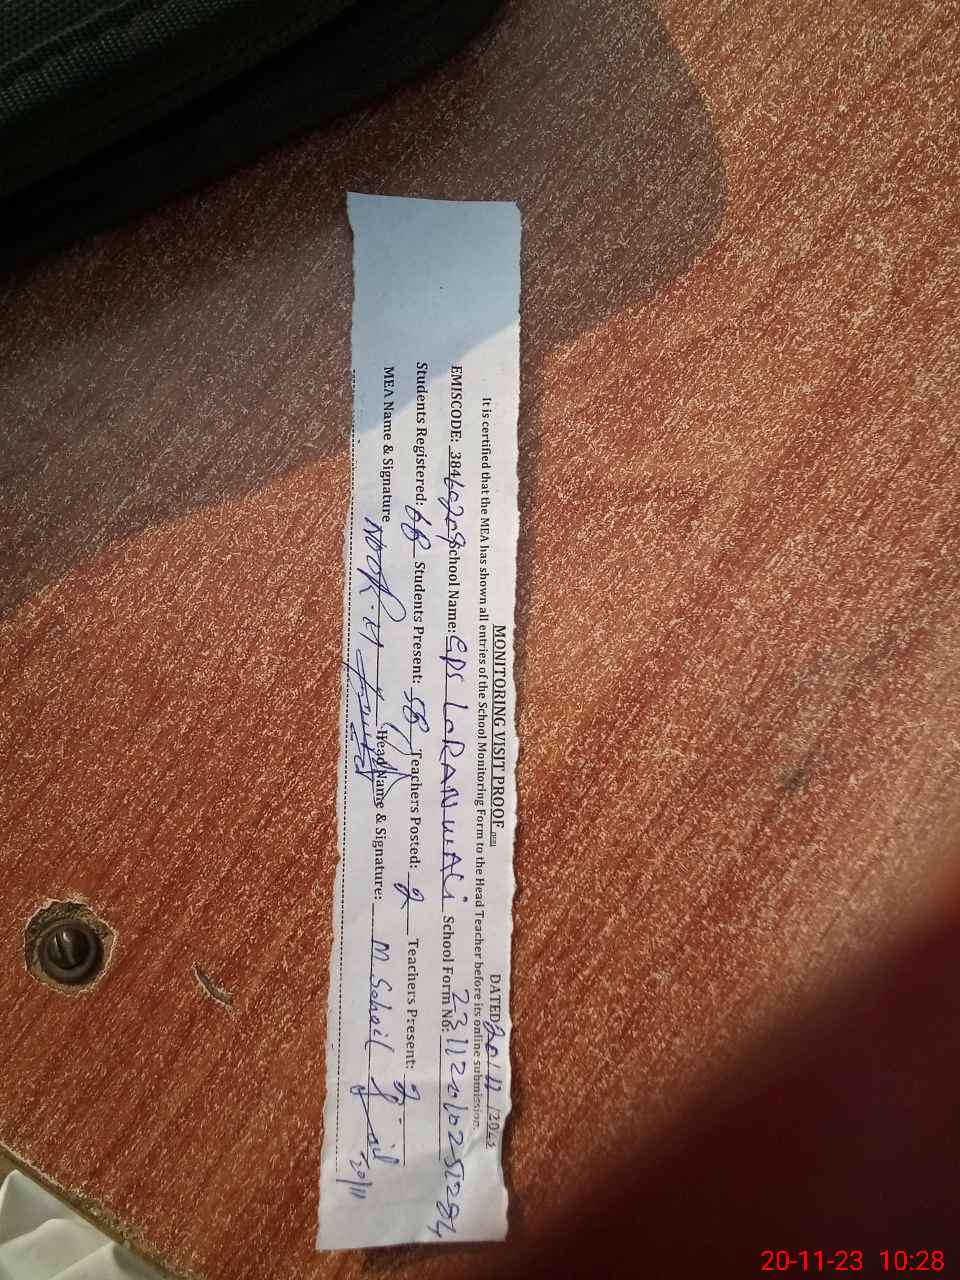 MONITORING VISIT PROOF
DATED 20/11/2023
It is certified that the MEA has shown all entries of the School Monitoring Form to the Head Teacher before its online submission.
EMISCODE: 38460209 School Name: GPS LARAN WALI School Form No:
Students Registered: 68 Students Present: 58 Teachers Posted: 2 Teachers Present:
MEA Name & Signature NOOR Head Name & Signature: M Sohail
20/11
20-11-23 10:28